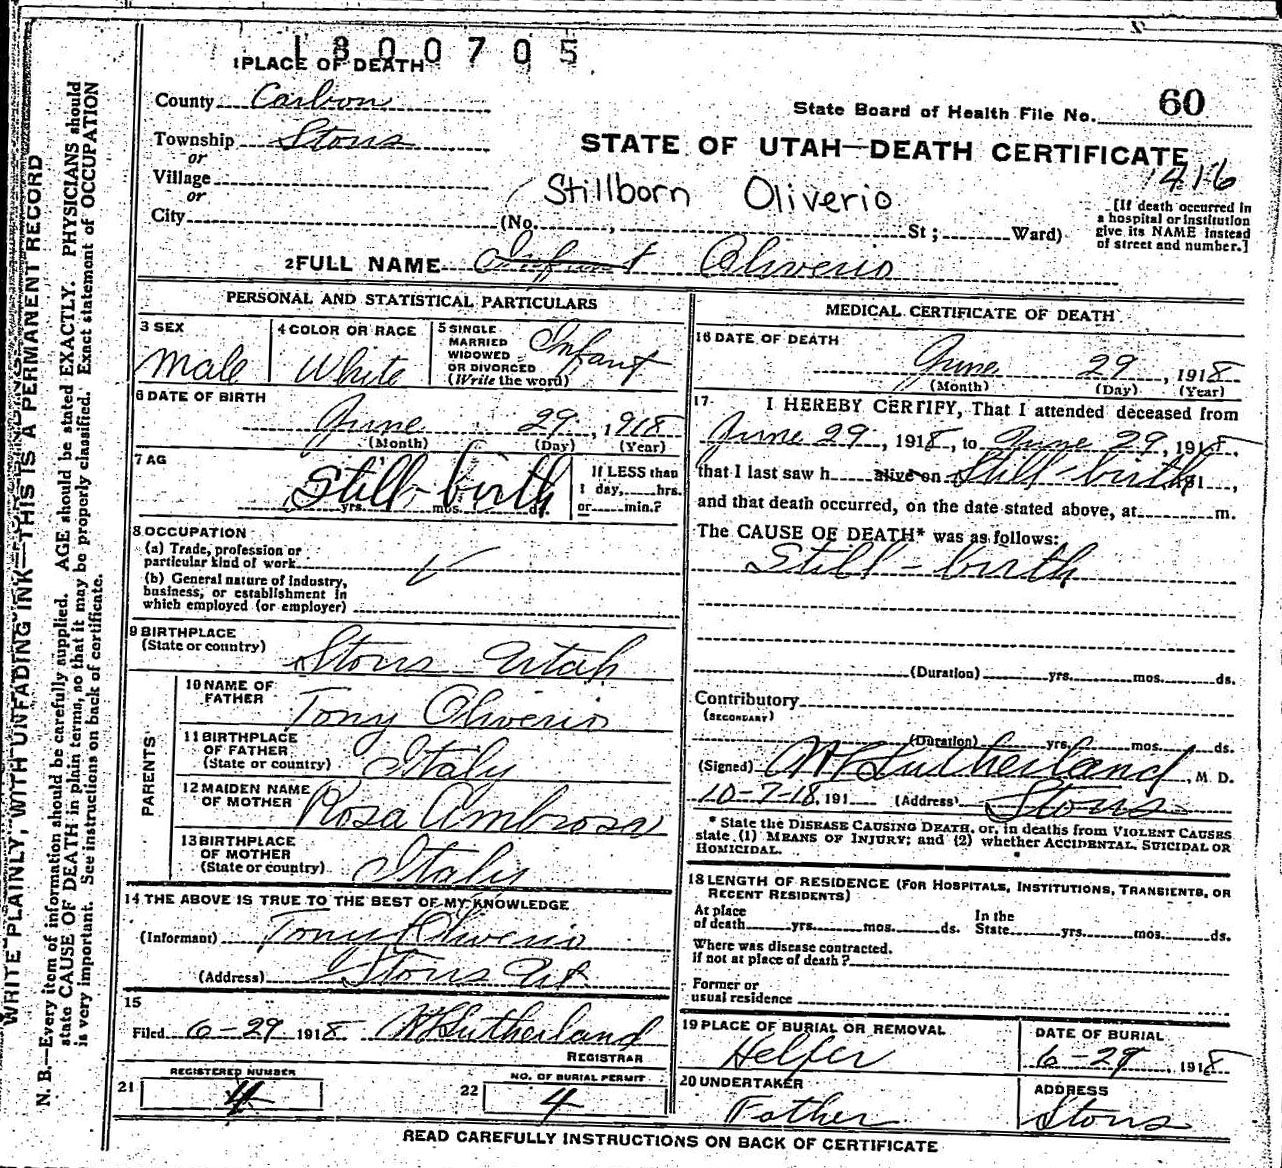 1800705
1 PLACE OF DEATH
County Carbon
State Board of Health File No. 60
Township Stors
or
STATE OF UTAH—DEATH CERTIFICATE
1416
Village
or
Stillborn Oliverio
City (No. , St ; Ward)
[If death occurred in
a hospital or institution
give its NAME instead
of street and number.]
2 FULL NAME Infant Oliverio
PERSONAL AND STATISTICAL PARTICULARS
3 SEX
Male
4 COLOR OR RACE
White
5 SINGLE
MARRIED
WIDOWED
OR DIVORCED
(Write the word)
Infant
6 DATE OF BIRTH
June 29, 1918
(Month) (Day) (Year)
7 AG
Still-birth
yrs. mos. d.
If LESS than
1 day, hrs.
or min.?
8 OCCUPATION
(a) Trade, profession or
particular kind of work
(b) General nature of Industry,
business, or establishment in
which employed (or employer)
9 BIRTHPLACE
(State or country)
Stors Utah
PARENTS
10 NAME OF
FATHER
Tony Oliverio
11 BIRTHPLACE
OF FATHER
(State or country)
Italy
12 MAIDEN NAME
OF MOTHER
Rosa Ambrosa
13 BIRTHPLACE
OF MOTHER
(State or country)
Italy
14 THE ABOVE IS TRUE TO THE BEST OF MY KNOWLEDGE
(Informant) Tony Oliverio
(Address) Stors Ut
15
Filed 6-29 1918 Sutherland
REGISTRAR
21 REGISTERED NUMBER
4
22 NO. OF BURIAL PERMIT
4
MEDICAL CERTIFICATE OF DEATH
16 DATE OF DEATH
June 29, 1918
(Month) (Day) (Year)
17 I HEREBY CERTIFY, That I attended deceased from
June 29, 1918, to June 29, 1918,
that I last saw h alive on Still-birth 191 ,
and that death occurred, on the date stated above, at m.
The CAUSE OF DEATH* was as follows:
Still-birth
(Duration) yrs. mos. ds.
Contributory
(SECONDARY)
(Duration) yrs. mos. ds.
(Signed) Sutherland, M D.
10-7-18, 191 (Address) Stors
* State the DISEASE CAUSING DEATH, or, in deaths from VIOLENT CAUSES
state (1) MEANS OF INJURY; and (2) whether ACCIDENTAL, SUICIDAL OR
HOMICIDAL.
18 LENGTH OF RESIDENCE (FOR HOSPITALS, INSTITUTIONS, TRANSIENTS, OR
RECENT RESIDENTS)
At place
of death yrs. mos. ds.
In the
State yrs. mos. ds.
Where was disease contracted.
if not at place of death?
Former or
usual residence
19 PLACE OF BURIAL OR REMOVAL
Helper
DATE OF BURIAL
6-29, 1918
20 UNDERTAKER
Father
ADDRESS
Stors
READ CAREFULLY INSTRUCTIONS ON BACK OF CERTIFICATE
WRITE PLAINLY, WITH UNFADING INK—THIS IS A PERMANENT RECORD
N. B.—Every item of information should be carefully supplied. AGE should be stated EXACTLY. PHYSICIANS should
state CAUSE OF DEATH in plain terms, so that it may be properly classified. Exact statement of OCCUPATION
is very important. See instructions on back of certificate.